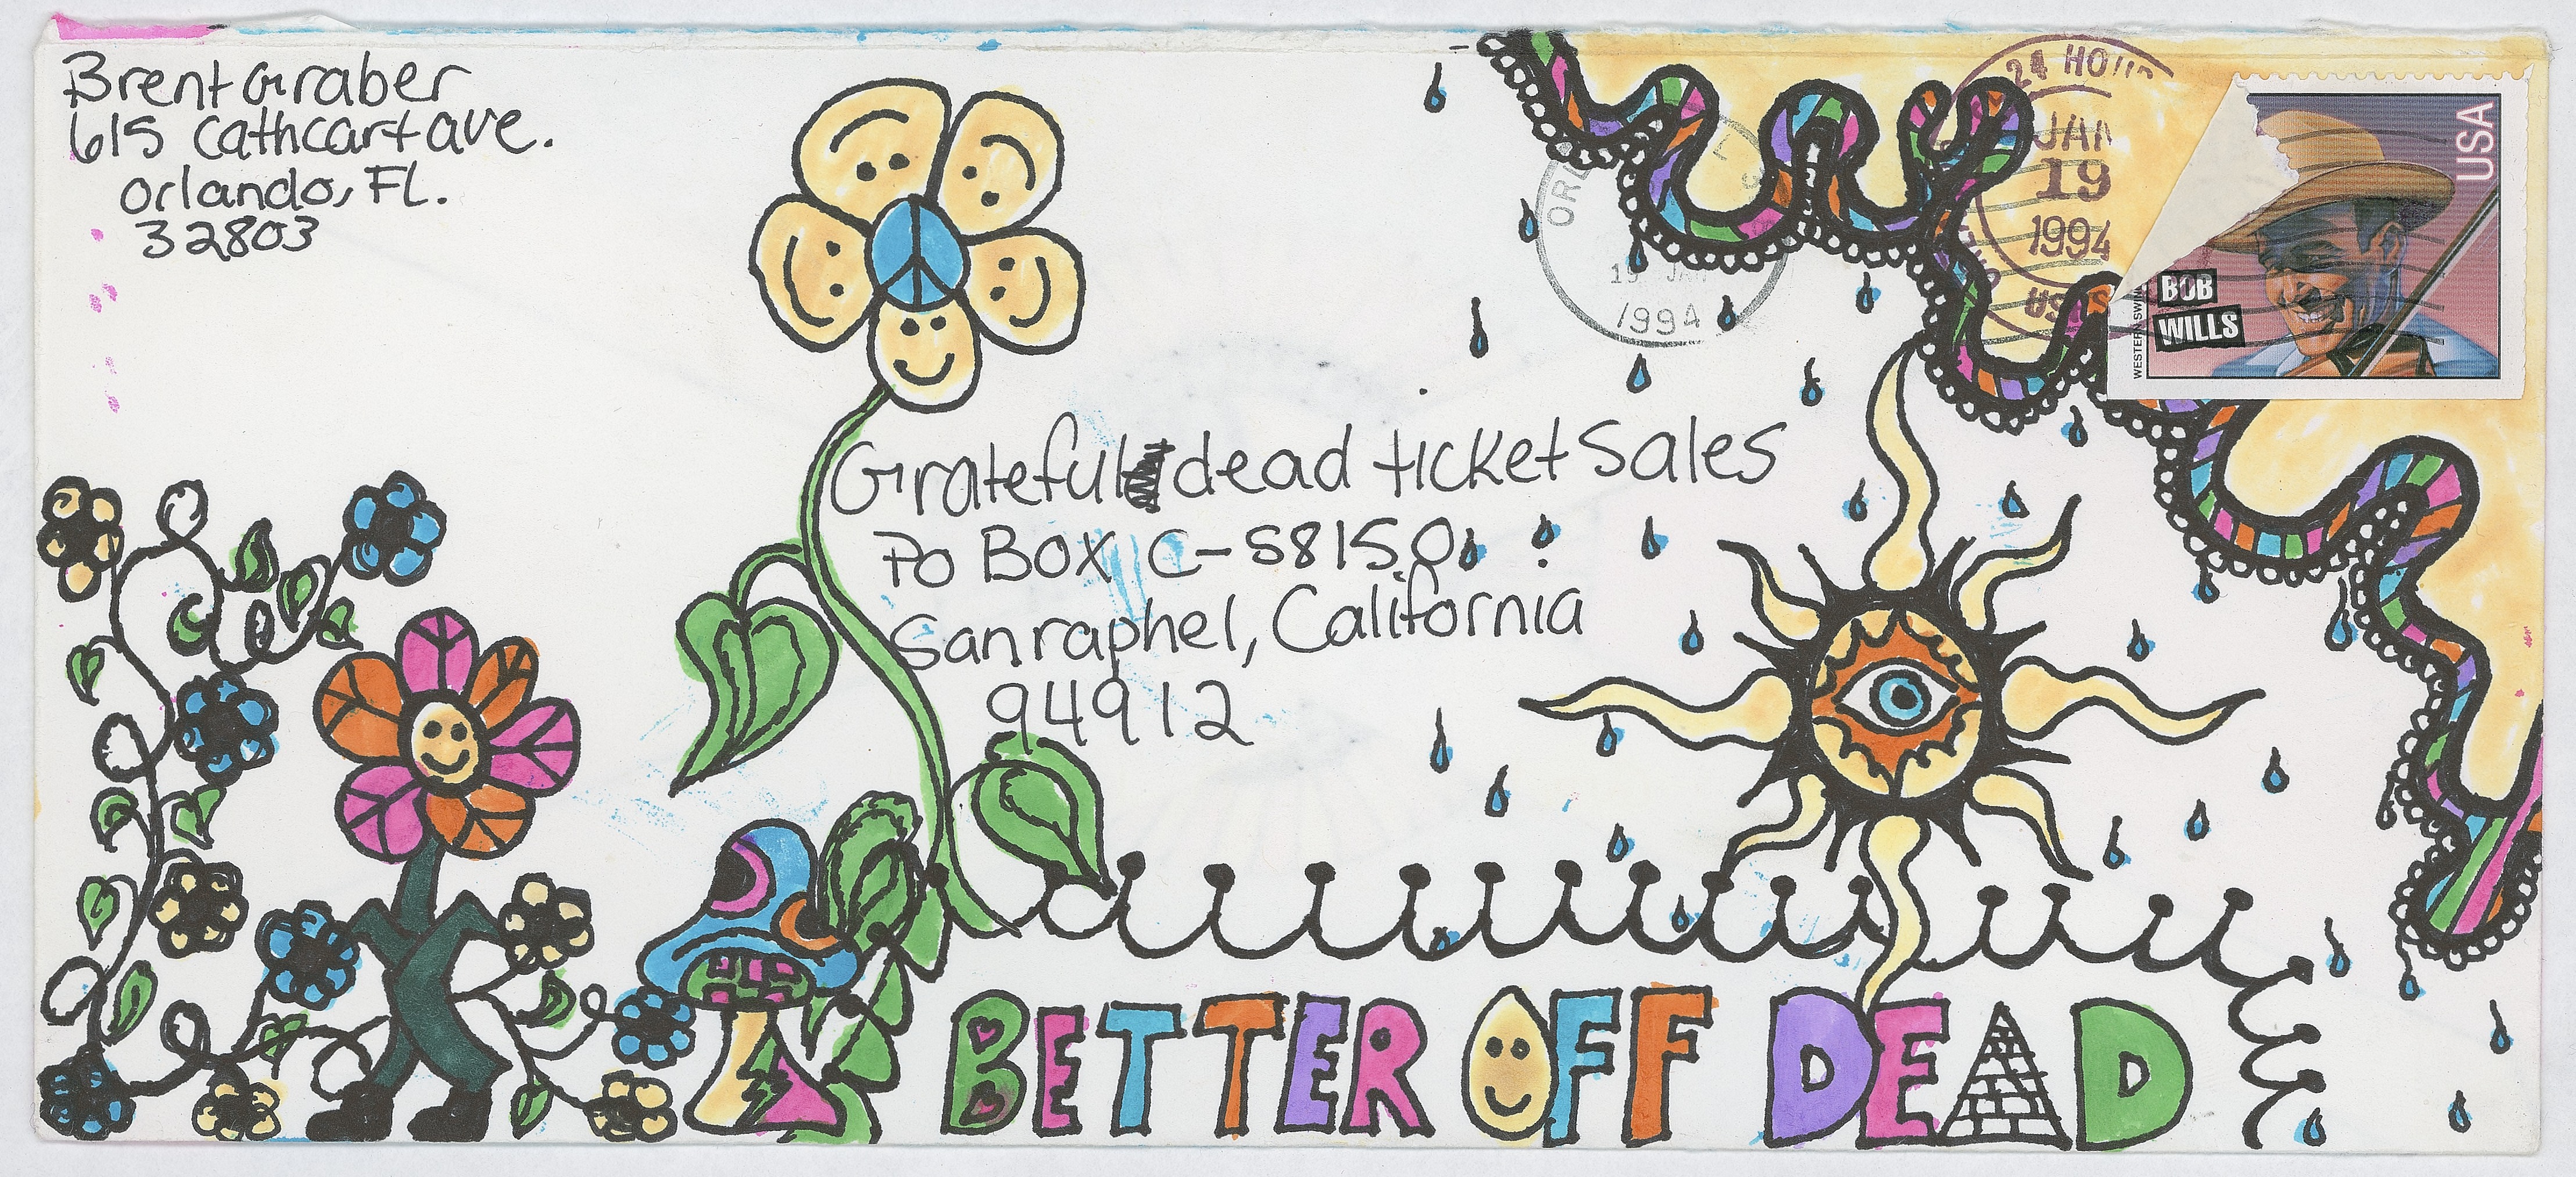 Brent Graber
615 Cathcart ave.
Orlando, FL.
32803
24 HOUR
JAN
19
1994
USPS
19 JAN
1994
USA
BOB
WILLS
WESTERN SWING
Grateful dead ticket Sales
PO BOX C-S8150
Sanraphel, California
94912
BETTER OFF DEAD